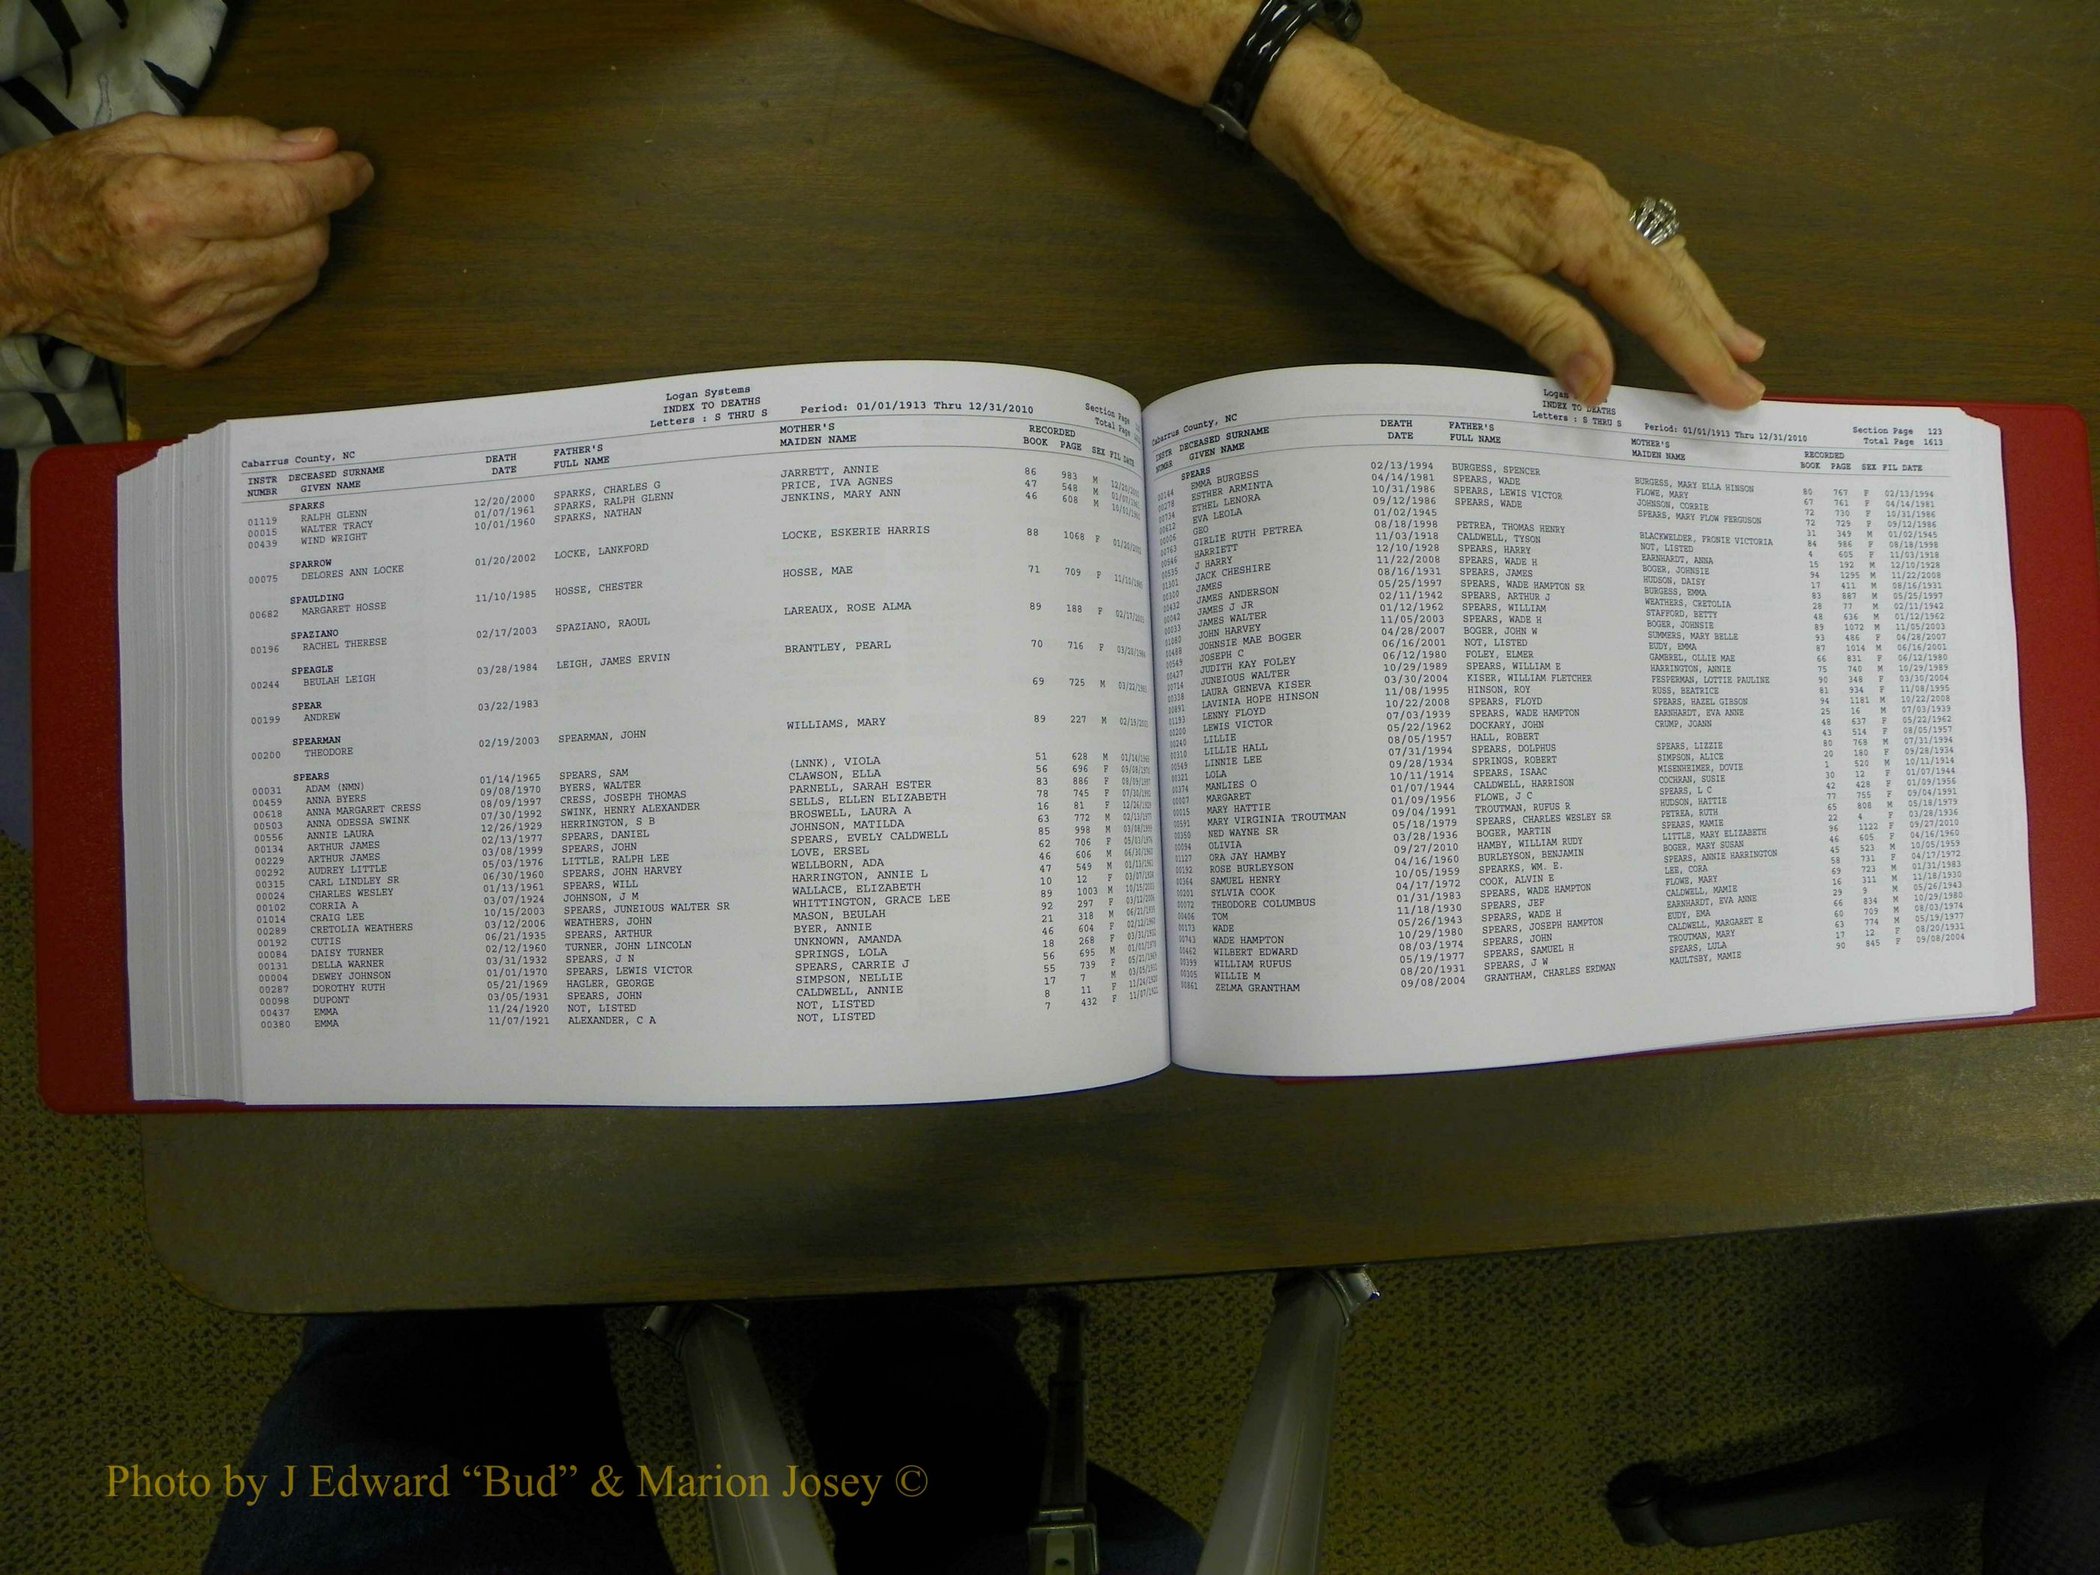 Logan Systems
INDEX TO DEATHS
Letters : S THRU S
Period: 01/01/1913 Thru 12/31/2010
Section Page
Total Page
Cabarrus County, NC
INSTR DECEASED SURNAME DEATH FATHER'S MOTHER'S RECORDED
NUMBR GIVEN NAME DATE FULL NAME MAIDEN NAME BOOK PAGE SEX FIL DATE
SPARKS
01119 RALPH GLENN 12/20/2000 SPARKS, CHARLES G JARRETT, ANNIE 86 983 M
00015 WALTER TRACY 01/07/1961 SPARKS, RALPH GLENN PRICE, IVA AGNES 47 548 M
00439 WIND WRIGHT 10/01/1960 SPARKS, NATHAN JENKINS, MARY ANN 46 608 M
SPARROW
00075 DELORES ANN LOCKE 01/20/2002 LOCKE, LANKFORD LOCKE, ESKERIE HARRIS 88 1068 F
SPAULDING
00682 MARGARET HOSSE 11/10/1985 HOSSE, CHESTER HOSSE, MAE 71 709 F
SPAZIANO
00196 RACHEL THERESE 02/17/2003 SPAZIANO, RAOUL LAREAUX, ROSE ALMA 89 188 F
SPEAGLE
00244 BEULAH LEIGH 03/28/1984 LEIGH, JAMES ERVIN BRANTLEY, PEARL 70 716 F
SPEAR
00199 ANDREW 03/22/1983 69 725 M
SPEARMAN
00200 THEODORE 02/19/2003 SPEARMAN, JOHN WILLIAMS, MARY 89 227 M
SPEARS
00031 ADAM (NMN) 01/14/1965 SPEARS, SAM (LNNK), VIOLA 51 628 M
00459 ANNA BYERS 09/08/1970 BYERS, WALTER CLAWSON, ELLA 56 696 F
00618 ANNA MARGARET CRESS 08/09/1997 CRESS, JOSEPH THOMAS PARNELL, SARAH ESTER 83 886 F
00503 ANNA ODESSA SWINK 07/30/1992 SWINK, HENRY ALEXANDER SELLS, ELLEN ELIZABETH 78 745 F
00556 ANNIE LAURA 12/26/1929 HERRINGTON, S B BROSWELL, LAURA A 16 81 F
00134 ARTHUR JAMES 02/13/1977 SPEARS, DANIEL JOHNSON, MATILDA 63 772 M
00229 ARTHUR JAMES 03/08/1999 SPEARS, JOHN SPEARS, EVELY CALDWELL 85 998 M
00292 AUDREY LITTLE 05/03/1976 LITTLE, RALPH LEE LOVE, ERSEL 62 706 F
00315 CARL LINDLEY SR 06/30/1960 SPEARS, JOHN HARVEY WELLBORN, ADA 46 606 M
00024 CHARLES WESLEY 01/13/1961 SPEARS, WILL HARRINGTON, ANNIE L 47 549 M
00102 CORRIA A 03/07/1924 JOHNSON, J M WALLACE, ELIZABETH 10 12 F
01014 CRAIG LEE 10/15/2003 SPEARS, JUNEIOUS WALTER SR WHITTINGTON, GRACE LEE 89 1003 M
00289 CRETOLIA WEATHERS 03/12/2006 WEATHERS, JOHN MASON, BEULAH 92 297 F
00192 CUTIS 06/21/1935 SPEARS, ARTHUR BYER, ANNIE 21 318 M
00084 DAISY TURNER 02/12/1960 TURNER, JOHN LINCOLN UNKNOWN, AMANDA 46 604 F
00131 DELLA WARNER 03/31/1932 SPEARS, J N SPRINGS, LOLA 18 268 F
00004 DEWEY JOHNSON 01/01/1970 SPEARS, LEWIS VICTOR SPEARS, CARRIE J 56 695 M
00287 DOROTHY RUTH 05/21/1969 HAGLER, GEORGE SIMPSON, NELLIE 55 739 F
00098 DUPONT 03/05/1931 SPEARS, JOHN CALDWELL, ANNIE 17 7 M
00437 EMMA 11/24/1920 NOT, LISTED NOT, LISTED 8 11 F
00380 EMMA 11/07/1921 ALEXANDER, C A NOT, LISTED 7 432 F
INDEX TO DEATHS
Letters : S THRU S
Period: 01/01/1913 Thru 12/31/2010
Section Page 123
Total Page 1613
Cabarrus County, NC
INSTR DECEASED SURNAME DEATH FATHER'S MOTHER'S RECORDED
NUMBR GIVEN NAME DATE FULL NAME MAIDEN NAME BOOK PAGE SEX FIL DATE
SPEARS
00144 EMMA BURGESS 02/13/1994 BURGESS, SPENCER BURGESS, MARY ELLA HINSON 80 767 F 02/13/1994
00278 ESTHER ARMINTA 04/14/1981 SPEARS, WADE FLOWE, MARY 67 761 F 04/14/1981
00734 ETHEL LENORA 10/31/1986 SPEARS, LEWIS VICTOR JOHNSON, CORRIE 72 730 F 10/31/1986
00612 EVA LEOLA 09/12/1986 SPEARS, WADE SPEARS, MARY FLOW FERGUSON 72 729 F 09/12/1986
00006 GEO 01/02/1945 31 349 M 01/02/1945
00763 GIRLIE RUTH PETREA 08/18/1998 PETREA, THOMAS HENRY BLACKWELDER, FRONIE VICTORIA 84 986 F 08/18/1998
00546 HARRIETT 11/03/1918 CALDWELL, TYSON NOT, LISTED 4 605 F 11/03/1918
00535 J HARRY 12/10/1928 SPEARS, HARRY EARNHARDT, ANNA 15 192 M 12/10/1928
01301 JACK CHESHIRE 11/22/2008 SPEARS, WADE H BOGER, JOHNSIE 94 1295 M 11/22/2008
00300 JAMES 08/16/1931 SPEARS, JAMES HUDSON, DAISY 17 411 M 08/16/1931
00432 JAMES ANDERSON 05/25/1997 SPEARS, WADE HAMPTON SR BURGESS, EMMA 83 887 M 05/25/1997
00042 JAMES J JR 02/11/1942 SPEARS, ARTHUR J WEATHERS, CRETOLIA 28 77 M 02/11/1942
00033 JAMES WALTER 01/12/1962 SPEARS, WILLIAM STAFFORD, BETTY 48 636 M 01/12/1962
01080 JOHN HARVEY 11/05/2003 SPEARS, WADE H BOGER, JOHNSIE 89 1072 M 11/05/2003
00488 JOHNSIE MAE BOGER 04/28/2007 BOGER, JOHN W SUMMERS, MARY BELLE 93 486 F 04/28/2007
00549 JOSEPH C 06/16/2001 NOT, LISTED EUDY, EMMA 87 1014 M 06/16/2001
00427 JUDITH KAY FOLEY 06/12/1980 FOLEY, ELMER GAMBREL, OLLIE MAE 66 831 F 06/12/1980
00714 JUNEIOUS WALTER 10/29/1989 SPEARS, WILLIAM E HARRINGTON, ANNIE 75 740 M 10/29/1989
00338 LAURA GENEVA KISER 03/30/2004 KISER, WILLIAM FLETCHER FESPERMAN, LOTTIE PAULINE 90 348 F 03/30/2004
00891 LAVINIA HOPE HINSON 11/08/1995 HINSON, ROY RUSS, BEATRICE 81 934 F 11/08/1995
01193 LENNY FLOYD 10/22/2008 SPEARS, FLOYD SPEARS, HAZEL GIBSON 94 1181 M 10/22/2008
00200 LEWIS VICTOR 07/03/1939 SPEARS, WADE HAMPTON EARNHARDT, EVA ANNE 25 16 M 07/03/1939
00240 LILLIE 05/22/1962 DOCKARY, JOHN CRUMP, JOANN 48 637 F 05/22/1962
00310 LILLIE HALL 08/05/1957 HALL, ROBERT 43 514 F 08/05/1957
00549 LINNIE LEE 07/31/1994 SPEARS, DOLPHUS SPEARS, LIZZIE 80 768 M 07/31/1994
00321 LOLA 09/28/1934 SPRINGS, ROBERT SIMPSON, ALICE 20 180 F 09/28/1934
00374 MANLIES O 10/11/1914 SPEARS, ISAAC MISENHEIMER, DOVIE 1 520 M 10/11/1914
00007 MARGARET 01/07/1944 CALDWELL, HARRISON COCHRAN, SUSIE 30 12 F 01/07/1944
00015 MARY HATTIE 01/09/1956 FLOWE, J C SPEARS, L C 42 428 F 01/09/1956
00591 MARY VIRGINIA TROUTMAN 09/04/1991 TROUTMAN, RUFUS R HUDSON, HATTIE 77 755 F 09/04/1991
00350 NED WAYNE SR 05/18/1979 SPEARS, CHARLES WESLEY SR PETREA, RUTH 65 808 M 05/18/1979
00094 OLIVIA 03/28/1936 BOGER, MARTIN SPEARS, MAMIE 22 4 F 03/28/1936
01127 ORA JAY HAMBY 09/27/2010 HAMBY, WILLIAM RUDY LITTLE, MARY ELIZABETH 96 1122 F 09/27/2010
00192 ROSE BURLEYSON 04/16/1960 BURLEYSON, BENJAMIN BOGER, MARY SUSAN 46 605 F 04/16/1960
00364 SAMUEL HENRY 10/05/1959 SPEARKS, WM. E. SPEARS, ANNIE HARRINGTON 45 523 M 10/05/1959
00201 SYLVIA COOK 04/17/1972 COOK, ALVIN E LEE, CORA 58 731 F 04/17/1972
00072 THEODORE COLUMBUS 01/31/1983 SPEARS, WADE HAMPTON FLOWE, MARY 69 723 M 01/31/1983
00406 TOM 11/18/1930 SPEARS, JEF CALDWELL, MAMIE 16 311 M 11/18/1930
00173 WADE 05/26/1943 SPEARS, WADE H EARNHARDT, EVA ANNE 29 9 M 05/26/1943
00743 WADE HAMPTON 10/29/1980 SPEARS, JOSEPH HAMPTON EUDY, EMA 66 834 M 10/29/1980
00462 WILBERT EDWARD 08/03/1974 SPEARS, JOHN CALDWELL, MARGARET E 60 709 M 08/03/1974
00399 WILLIAM RUFUS 05/19/1977 SPEARS, SAMUEL H TROUTMAN, MARY 63 774 M 05/19/1977
00305 WILLIE M 08/20/1931 SPEARS, J W SPEARS, LULA 17 12 F 08/20/1931
00861 ZELMA GRANTHAM 09/08/2004 GRANTHAM, CHARLES ERDMAN MAULTSBY, MAMIE 90 845 F 09/08/2004
Photo by J Edward “Bud” & Marion Josey ©